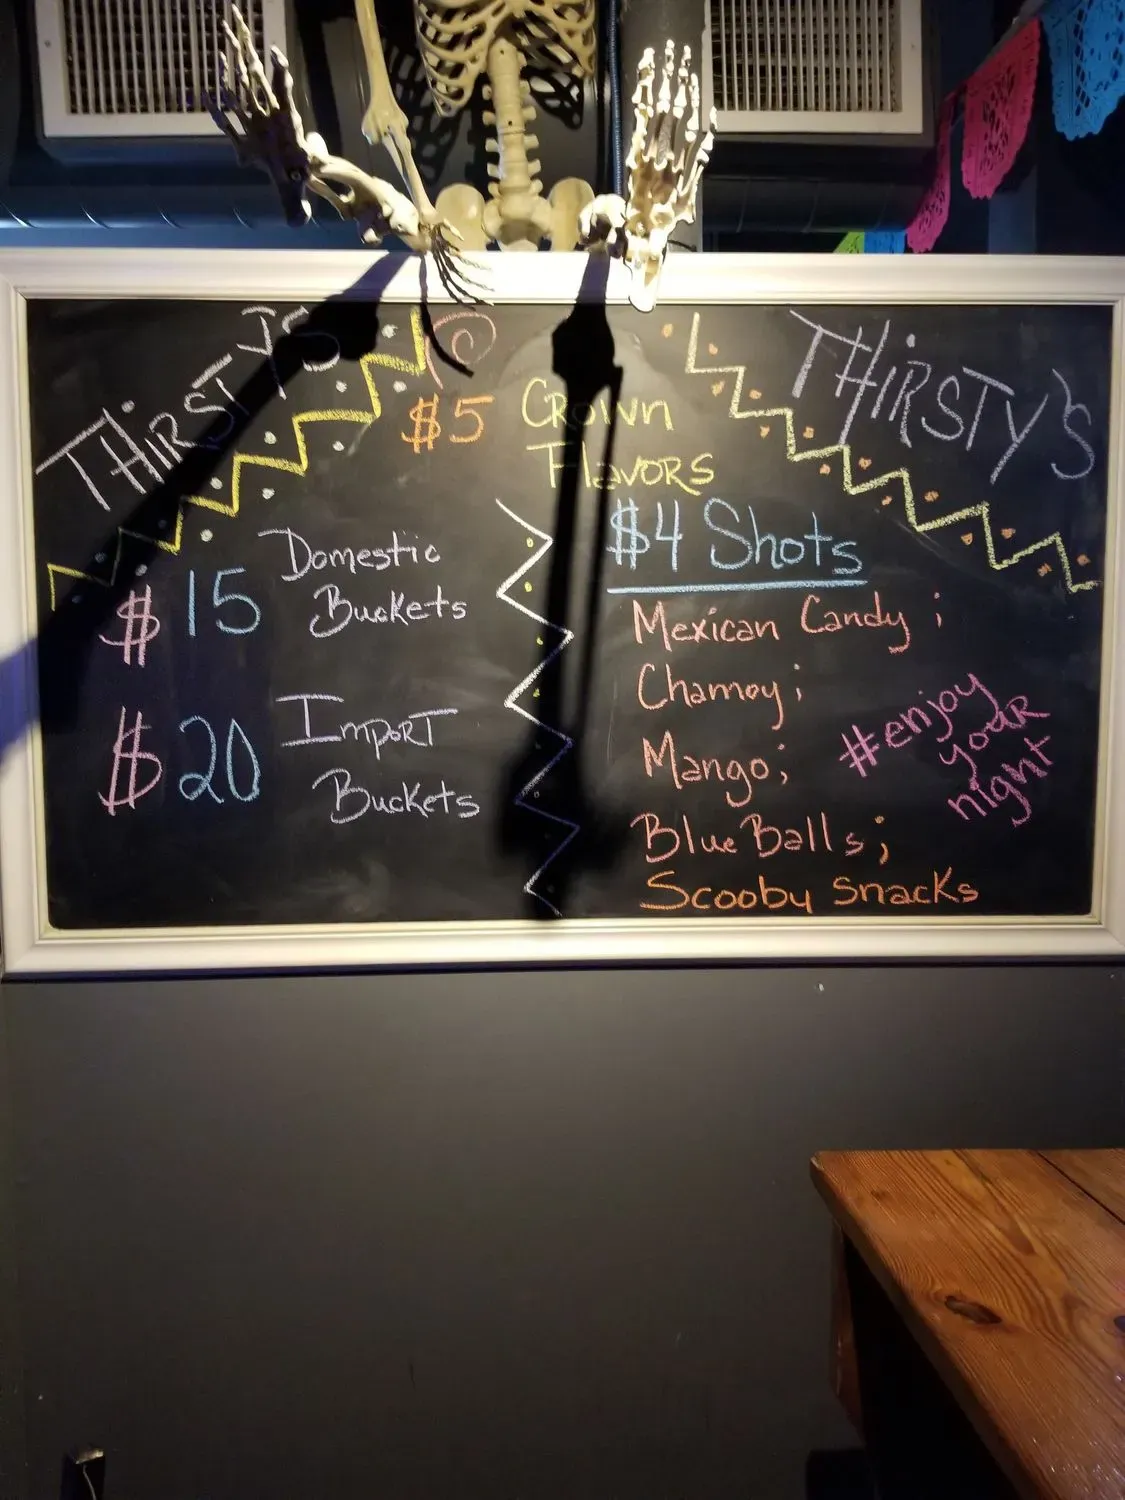 THIRSTY'S
THIRSTY'S
$5 Crown
Flavors
$15 Domestic
Buckets
$20 Import
Buckets
$4 Shots
Mexican Candy;
Chamoy;
Mango;
Blue Balls;
Scooby Snacks
#enjoy
your
night